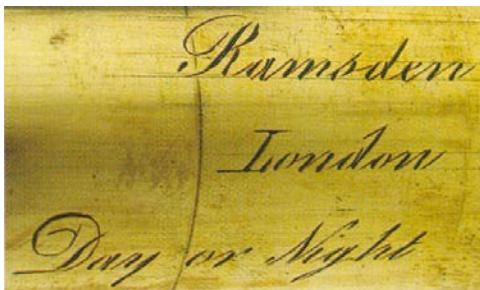 Ramsden
London
Day or Night